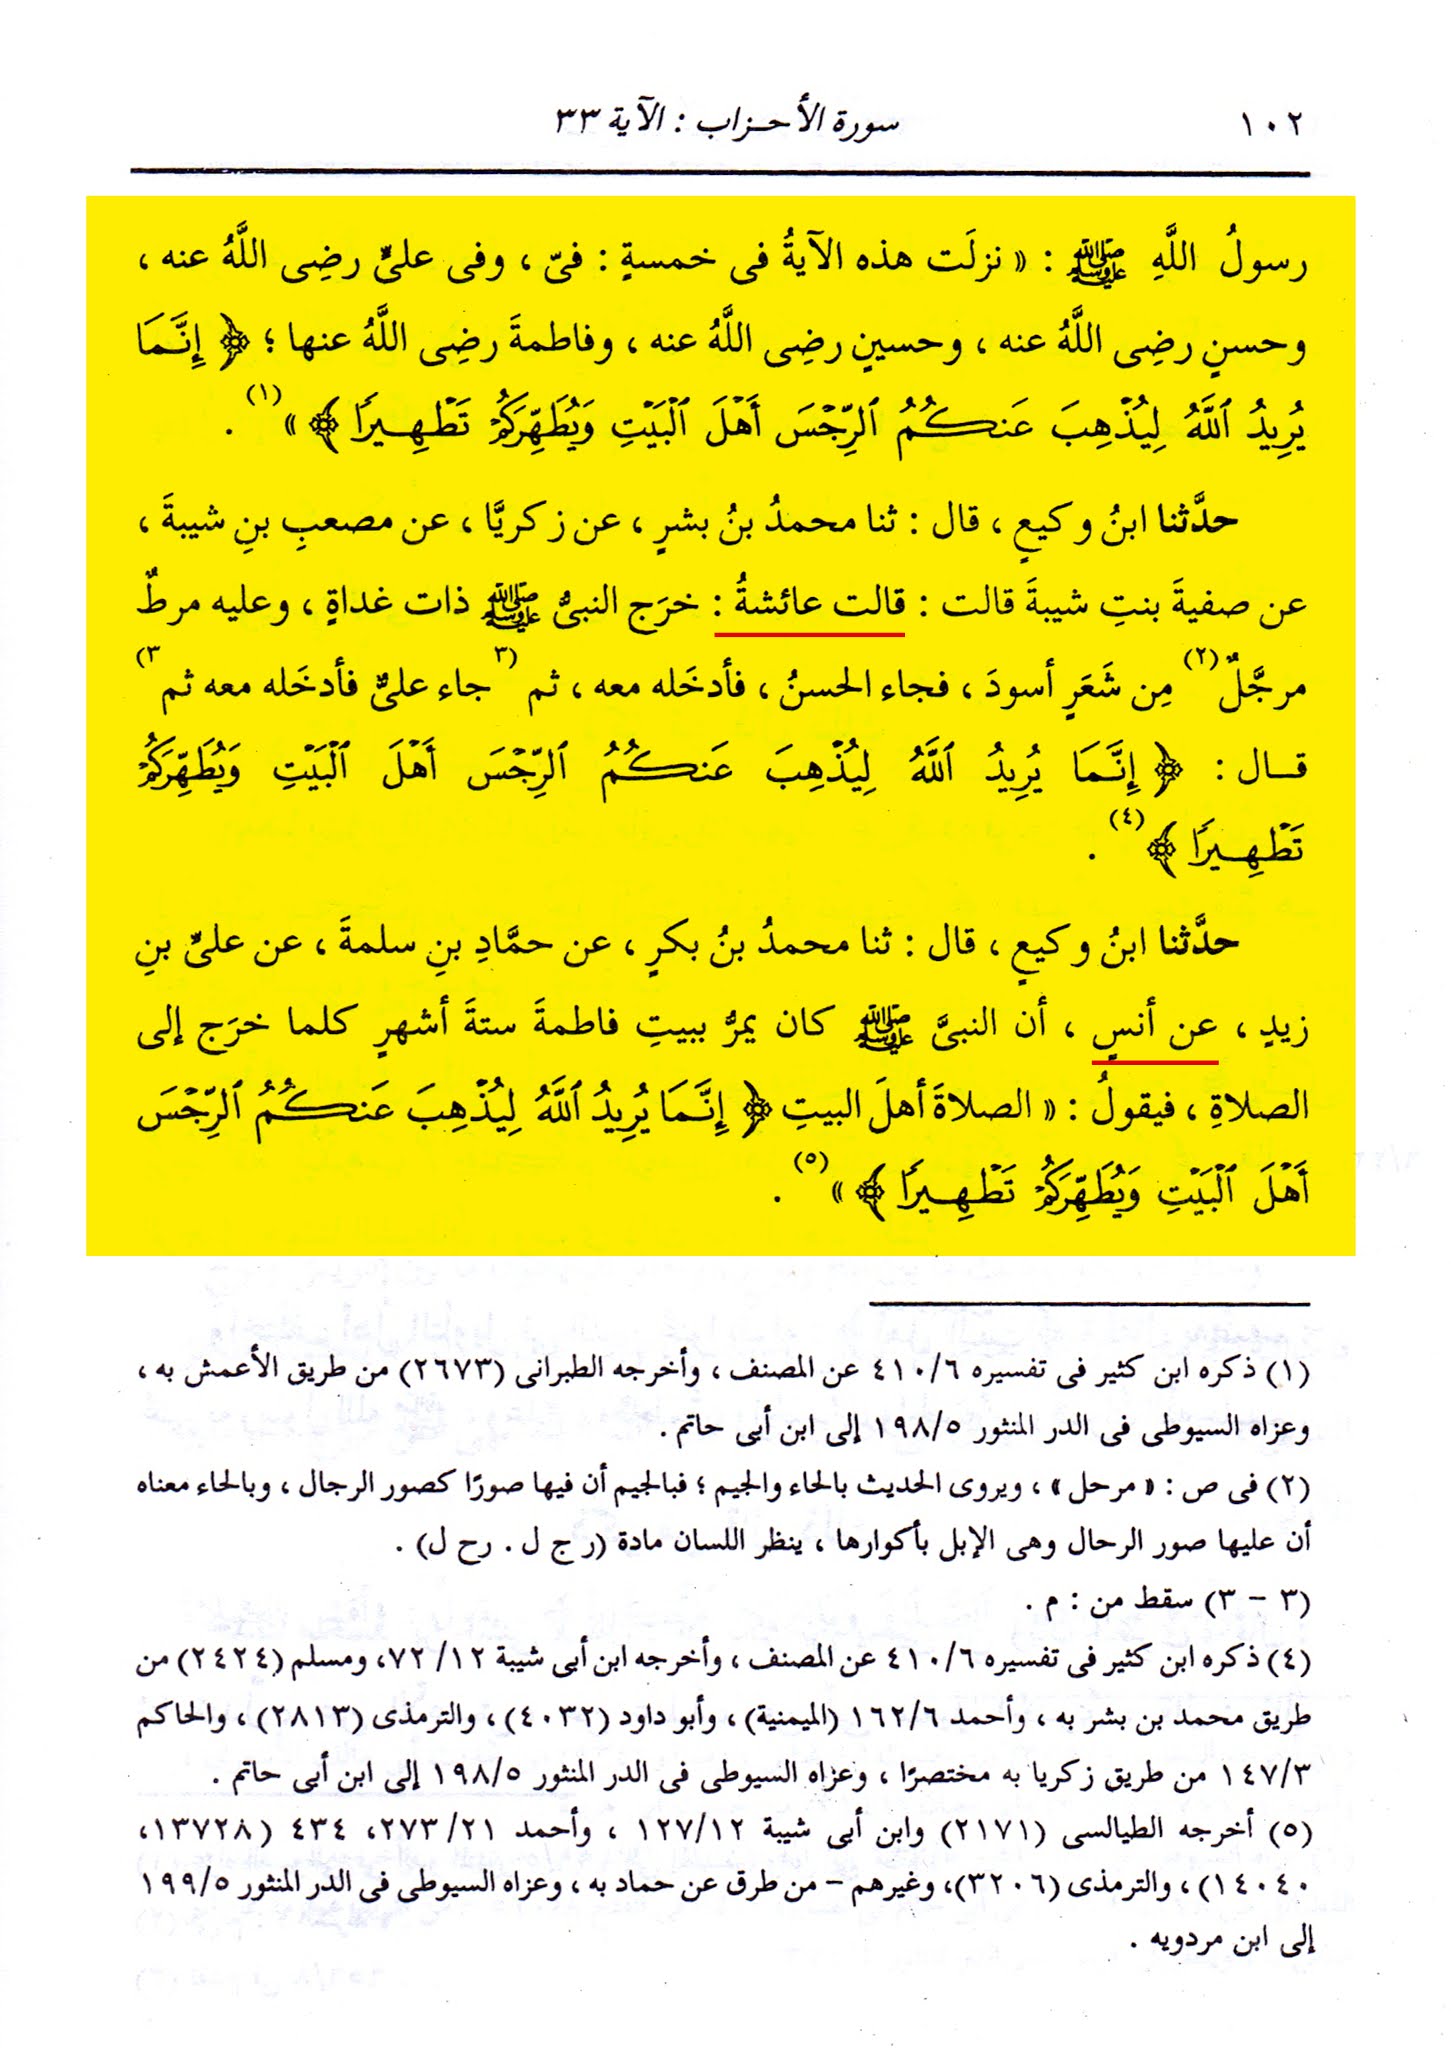 ١٠٢ سورة الأحزاب : الآية ٣٣
رسولُ اللَّهِ ﷺ : « نزلَت هذه الآيةُ فى خمسةٍ : فىّ ، وفى علىٍّ رضِى اللَّهُ عنه ،
وحسنٍ رضِى اللَّهُ عنه ، وحسينٍ رضِى اللَّهُ عنه ، وفاطمةَ رضِى اللَّهُ عنها ؛ ﴿ إِنَّمَا
يُرِيدُ ٱللَّهُ لِيُذْهِبَ عَنكُمُ ٱلرِّجْسَ أَهْلَ ٱلْبَيْتِ وَيُطَهِّرَكُمْ تَطْهِيرًا ﴾ »(١) .
حدَّثنا ابنُ وكيعٍ ، قال : ثنا محمدُ بنُ بشرٍ ، عن زكريَّا ، عن مصعبِ بنِ شيبةَ ،
عن صفيةَ بنتِ شيبةَ قالت : قالت عائشةُ : خرَج النبىُّ ﷺ ذات غداةٍ ، وعليه مرطٌ
مرجَّلٌ(٢) مِن شَعَرٍ أسودَ ، فجاء الحسنُ ، فأدخَله معه ، ثم (٣ جاء علىٌّ فأدخَله معه ثم ٣)
قال : ﴿ إِنَّمَا يُرِيدُ ٱللَّهُ لِيُذْهِبَ عَنكُمُ ٱلرِّجْسَ أَهْلَ ٱلْبَيْتِ وَيُطَهِّرَكُمْ
تَطْهِيرًا ﴾(٤) .
حدَّثنا ابنُ وكيعٍ ، قال : ثنا محمدُ بنُ بكرٍ ، عن حمَّادِ بنِ سلمةَ ، عن علىِّ بنِ
زيدٍ ، عن أنسٍ ، أن النبىَّ ﷺ كان يمرُّ ببيتِ فاطمةَ ستةَ أشهرٍ كلما خرَج إلى
الصلاةِ ، فيقولُ : « الصلاةَ أهلَ البيتِ ﴿ إِنَّمَا يُرِيدُ ٱللَّهُ لِيُذْهِبَ عَنكُمُ ٱلرِّجْسَ
أَهْلَ ٱلْبَيْتِ وَيُطَهِّرَكُمْ تَطْهِيرًا ﴾ »(٥) .
(١) ذكره ابن كثير فى تفسيره ٤١٠/٦ عن المصنف ، وأخرجه الطبرانى (٢٦٧٣) من طريق الأعمش به ،
وعزاه السيوطى فى الدر المنثور ١٩٨/٥ إلى ابن أبى حاتم .
(٢) فى ص : « مرحل » ، ويروى الحديث بالحاء والجيم ؛ فبالجيم أن فيها صورًا كصور الرجال ، وبالحاء معناه
أن عليها صور الرحال وهى الإبل بأكوارها ، ينظر اللسان مادة (ر ج ل . رح ل) .
(٣ - ٣) سقط من : م .
(٤) ذكره ابن كثير فى تفسيره ٤١٠/٦ عن المصنف ، وأخرجه ابن أبى شيبة ٧٢/١٢، ومسلم (٢٤٢٤) من
طريق محمد بن بشر به ، وأحمد ١٦٢/٦ (الميمنية)، وأبو داود (٤٠٣٢)، والترمذى (٢٨١٣) ، والحاكم
١٤٧/٣ من طريق زكريا به مختصرًا ، وعزاه السيوطى فى الدر المنثور ١٩٨/٥ إلى ابن أبى حاتم .
(٥) أخرجه الطيالسى (٢١٧١) وابن أبى شيبة ١٢٧/١٢ ، وأحمد ٢٧٣/٢١، ٤٣٤ (١٣٧٢٨،
١٤٠٤٠)، والترمذى (٣٢٠٦)، وغيرهم - من طرق عن حماد به ، وعزاه السيوطى فى الدر المنثور ١٩٩/٥
إلى ابن مردويه .